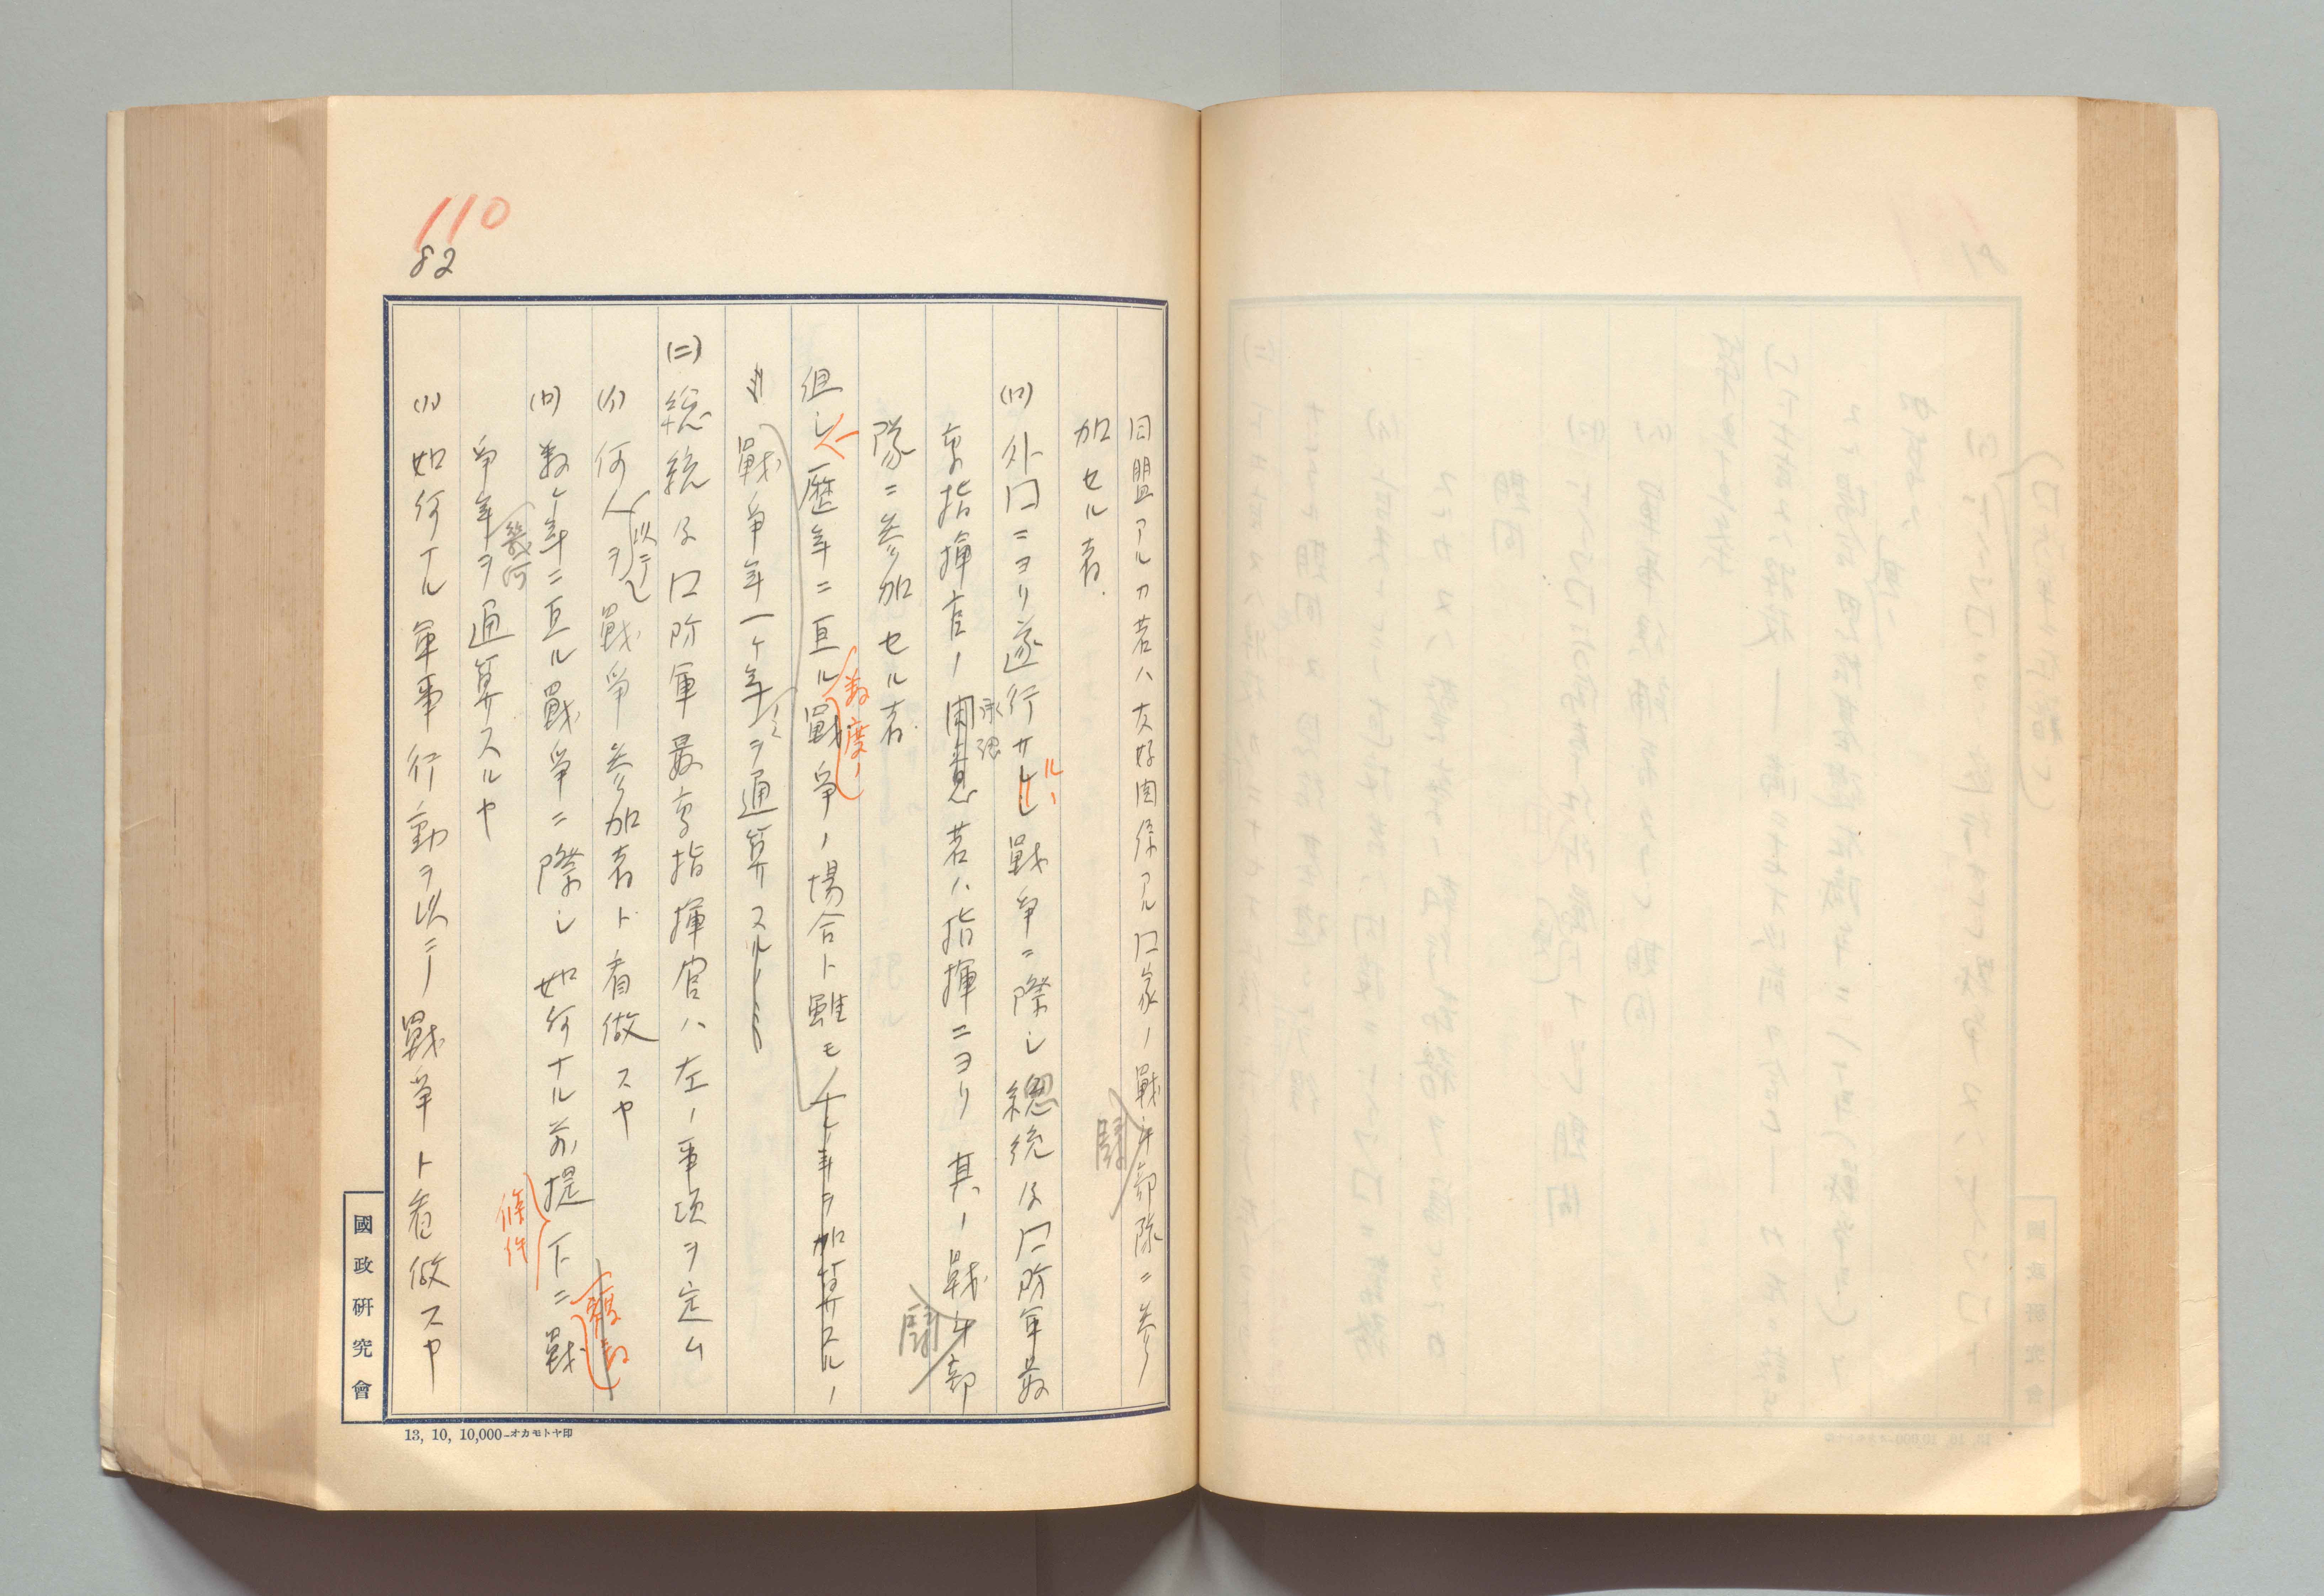 110
82
同盟アルカ若ハ友好関係アル国家ノ戦斗部隊ニ参
闘
加セル者
(ロ)外国ニヨリ遂行サレシ戦争ニ際シ總統及国防軍最
ルヽ
高指揮官ノ同意若ハ指揮ニヨリ其ノ戦斗部
承認
闘
隊ニ参加セル者
但シ一歴年ニ亘ル戦争ノ場合ト雖モ
数度ノ
戦争年一ヶ年ヲ通算ス
(二)總統及国防軍最高指揮官ハ左ノ事項ヲ定ム
(イ)何人ヲ戦争参加者ト看做スヤ
以テ
(ロ)数ヶ年ニ亘ル戦争ニ際シ如何ナル前提下ニ戦
條件
争年ヲ通算スルヤ
幾何
(ハ)如何ナル軍事行動ヲ以テ戦争ト看做スヤ
國政研究會
13, 10, 10,000-オカモトヤ印